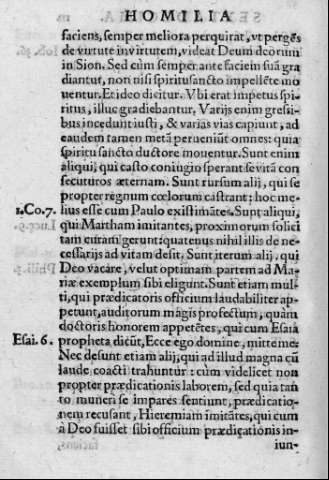 HOMILIA
faciens, semper meliora perquirat, vt pergẽs
de virtute in virtutem, videat Deum deorum
in Sion. Sed cùm semper ante faciem suã gra
diantur, non nisi spiritu sancto impellẽte mo
uentur. Et ideo dicitur. Vbi erat impetus spi
ritus, illuc gradiebantur. Varijs enim gressi-
bus incedunt iusti, & varias vias capiunt, ad
eandem tamen metã perueniũt omnes: quia
spiritu sancto ductore mouentur. Sunt enim
aliqui, qui casto coniugio sperant se vitã con
secuturos æternam. Sunt rursum alij, qui se
propter regnum cœlorum castrant: hoc me-
1.Co.7. lius esse cum Paulo existimãtes. Sunt aliqui,
qui Martham imitantes, proximorum solici
tam curam gerunt: quatenus nihil illis de ne-
cessarijs ad vitam desit. Sunt iterum alij, qui
Deo vacare, velut optimam partem ad Ma-
riæ exemplum sibi eligunt. Sunt etiam mul-
ti, qui prædicatoris officium laudabiliter ap-
petunt, auditorum magis profectum, quàm
doctoris honorem appetẽtes, qui cum Esaia
Esai.6. propheta dicũt, Ecce ego domine, mitte me.
Nec desunt etiam alij, qui ad illud magna cũ
laude coacti trahuntur: cùm videlicet non
propter prædicationis laborem, sed quia tan
to muneri se impares sentiunt, prædicatio-
nem recusant, Hieremiam imitãtes, qui cum
à Deo fuisset sibi officium prædicationis in-
iun-